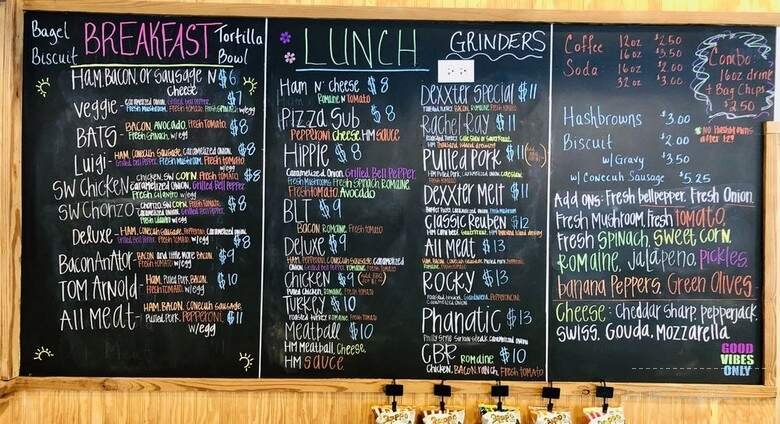 Bagel
Biscuit
BREAKFAST
Tortilla
Bowl
Ham, Bacon, or Sausage N $6
Cheese
Veggie - Caramelized Onion, Grilled Bell Pepper, $7
Fresh Mushroom, Fresh Tomato, Fresh Spinach w/egg
BATS - Bacon, Avocado, Fresh Tomato, $8
Fresh Spinach w/egg
Luigi - Ham, Conecuh Sausage, Caramelized Onion, $8
Grilled Bell Pepper, Fresh Mushroom, Fresh Tomato w/egg
SW Chicken - Chicken, SW Corn, Fresh Tomato, $8
Caramelized Onion, Grilled Bell Pepper
Fresh Cilantro w/egg
SW Chorizo - Chorizo, SW Corn, Fresh Tomato, $8
Caramelized Onion, Grilled Bell Pepper
Fresh Cilantro w/egg
Deluxe - Ham, Conecuh Sausage, Pepperoni, Caramelized Onion, $8
Grilled Bell Pepper, Fresh Tomato w/egg
BaconAnAtor - Bacon and little more Bacon, $9
Fresh Tomato w/egg
Tom Arnold - Ham, Pulled Pork, Bacon, $10
Fresh Tomato w/egg
All Meat - Ham, Bacon, Conecuh Sausage, $11
Pulled Pork, Pepperoni,
w/egg
LUNCH
Ham N' Cheese $8
Romaine N Tomato
Pizza Sub $8
Pepperoni Cheese HM Sauce
Hippie $8
Caramelized Onion, Grilled Bell Pepper
Fresh Mushrooms, Fresh Spinach, Romaine
Fresh Tomato Avocado
BLT $9
Bacon Romaine Fresh Tomato
Deluxe $9
Ham, Pepperoni, Conecuh Sausage, Caramelized
Onion, Grilled Bell Pepper, Romaine, Fresh Tomato
Chicken $9
Pulled Chicken, Romaine, Fresh Tomato
Turkey $10
Roasted Turkey Romaine Fresh Tomato
Meatball $10
HM Meatball, Cheese,
HM Sauce
GRINDERS
Dexxter Special $11
Rachel Ray $11
Pulled Pork $11
Dexxter Melt $11
Classic Reuben $12
All Meat $13
Rocky $13
Phanatic $13
CBR Romaine $10
Chicken, Bacon, Ranch, Fresh Tomato
Coffee 12oz $2.50
16oz $3.50
Soda 16oz $2.00
32oz $3.00
Combo
16oz drink
+ Bag Chips
$2.50
Hashbrowns $3.00
* No Hashbrowns
after 12!
Biscuit $2.00
w/ Gravy $3.50
w/ Conecuh Sausage $5.25
Add ons: Fresh bellpepper, Fresh Onion,
Fresh Mushroom, Fresh tomato,
Fresh Spinach, Sweet corn,
Romaine, Jalapeno, Pickles,
Banana Peppers, Green Olives
Cheese: Cheddar, sharp, pepperjack
Swiss, Gouda, Mozzarella
GOOD
VIBES
ONLY